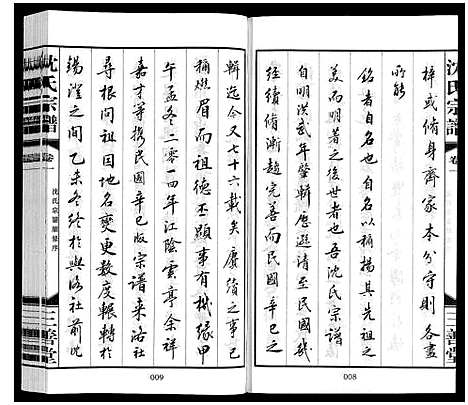 沈氏宗譜
卷一
三善堂
梓或脩身齊家本分守則各盡
所能
銘者自名也自名以稱揚其先祖之
美而明著之後世者也吾沈氏宗譜
自明洪武年肇輯歷遜清至民國幾
經續脩漸趨完善而民國辛巳
008
輯迄今又七十六載矣賡續之事已
稱燃眉而祖德丕顯事有機緣甲
午孟冬二零一四年江陰雲亭余祥
嘉才等攜民國辛巳版宗譜來洛社
尋根問祖因地名變更數度輾轉於
錫澄之間乙未冬終於與洛社前沈
009
沈氏宗譜
卷一
沈氏宗譜續修序
三善堂